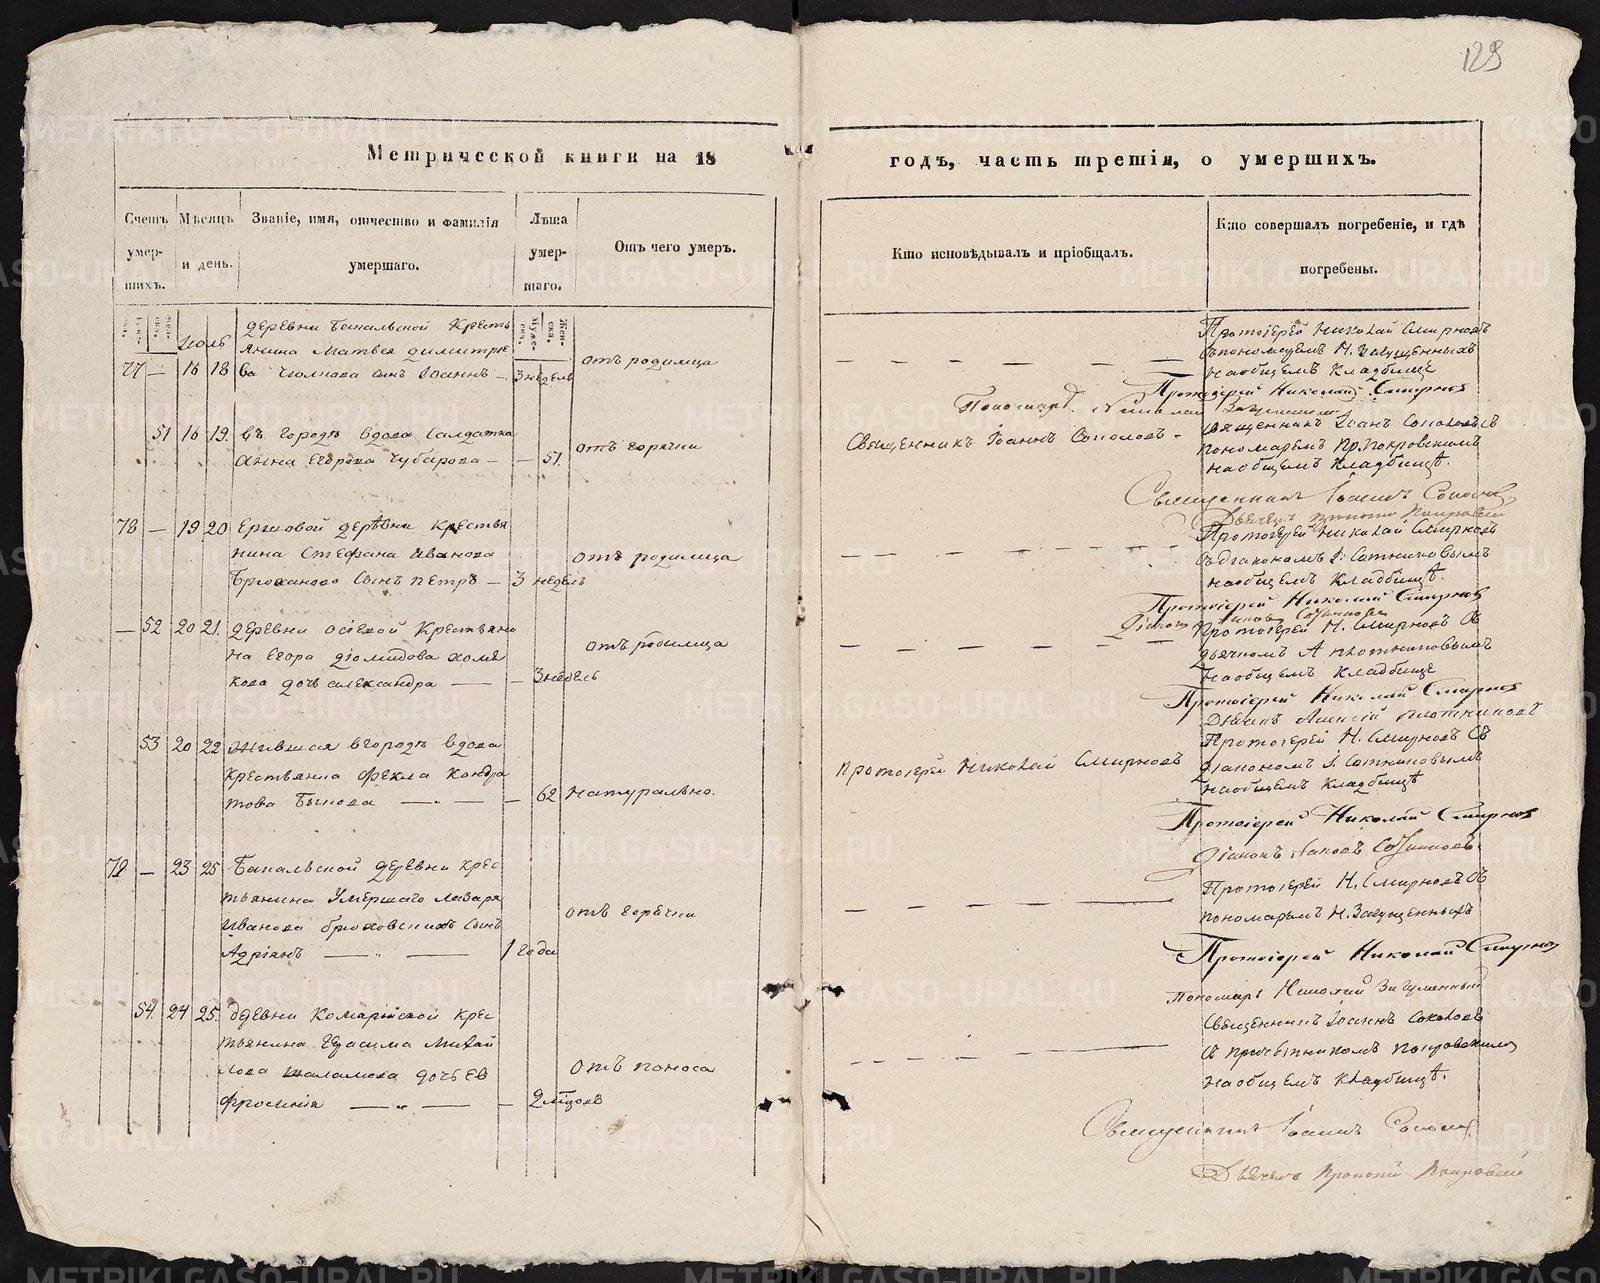 129
Метрической книги на 18 годъ, часть третія, о умершихъ.
Счетъ умер-
шихъ.
Мѣсяцъ
и день.
Званіе, имя, отчество и фамилія
умершаго.
Лѣта
умер-
шаго.
Отъ чего умеръ.
Кто исповѣдывалъ и пріобщалъ.
Кто совершалъ погребеніе, и гдѣ
погребены.
Июль
деревни Бакальской Кресть
янина Матвея Димитріе
77 — 16 18 ва сынъ Іоаннъ — 3 недель
отъ родимца
Протоіерей Николай Смирновъ
съ пономаремъ Н. Загуменныхъ
на общемъ Кладбище
Протоіерей Николай Смирновъ
Пономарь Николай
51 16 19. въ городѣ вдова Салдатка
Анна Егорова Чубарова — — 51.
отъ горячки
Священникъ Іоаннъ Соколовъ
Священникъ Іоанъ Соколовъ съ
пономаремъ Пр. Покровскимъ
на общемъ Кладбищѣ.
Священникъ Іоаннъ Соколовъ
Дьячекъ Прокопій Покровскій
78 — 19 20 Ершовой деревни Крестья
нина Стефана Иванова
Брюханова Сынъ Петръ — 3 недель
отъ родимца
Протоіерей Николай Смирновъ
съ діакономъ І. Сотниковымъ
на общемъ Кладбищѣ.
Протоіерей Николай Смирновъ
Діаконъ Іаковъ Сотниковъ
— 52 20 21. деревни Осіевой Крестьяни
на Егора Діомидова Хомя
кова дочь александра — — 3 недель
отъ родимца
Протоіерей Н. Смирновъ Съ
дьячкомъ А Плотниковымъ
на общемъ Кладбище
Протоіерей Николай Смирновъ
Дьячекъ Алексій Плотниковъ
53 20 22 жившая в городѣ вдова
крестьянка Фекла Кондра
това Быкова — — — 62
натурально.
Протоіерей Николай Смирновъ
Протоіерей Н. Смирновъ Съ
діакономъ І. Сотниковымъ
на общемъ Кладбищѣ
Протоіерей Николай Смирновъ
Діаконъ Іаковъ Сотниковъ
— 23 25 Бакальской деревни крес
тьянина Умершаго Лазаря
Иванова сынъ
Адріанъ — — 1 года
отъ горячки
Протоіерей Н. Смирновъ Съ
пономаремъ Н. Загуменныхъ
Протоіерей Николай Смирновъ
Пономарь Николай Загуменный
54. 24 25. деревни Комарійской крес
тьянина Герасима Михай
лова Шаламова дочь Ев
фросинія — — — 2 мѣсцовъ
отъ поноса
Священникъ Іоаннъ Соколовъ
съ причетникомъ Покровскимъ
на общемъ Кладбищѣ.
Священникъ Іоаннъ Соколовъ
Дьячекъ Прокопій Покровскій